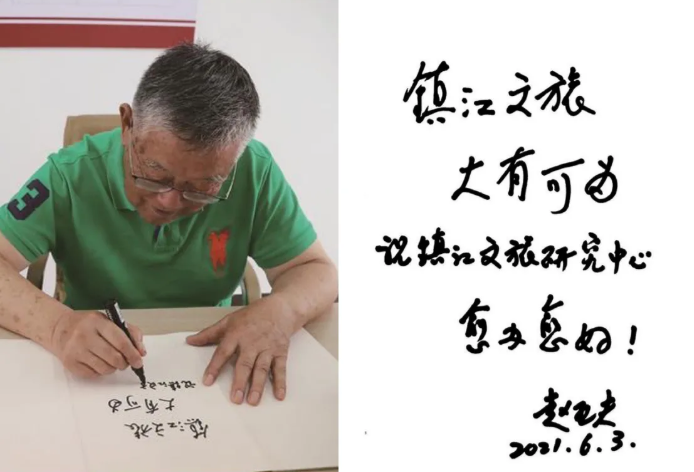 3
镇江文旅
大有可为
祝镇江文
镇江文旅
大有可为
祝镇江文旅研究中心
愈办愈好!
赵亚夫
2021.6.3.